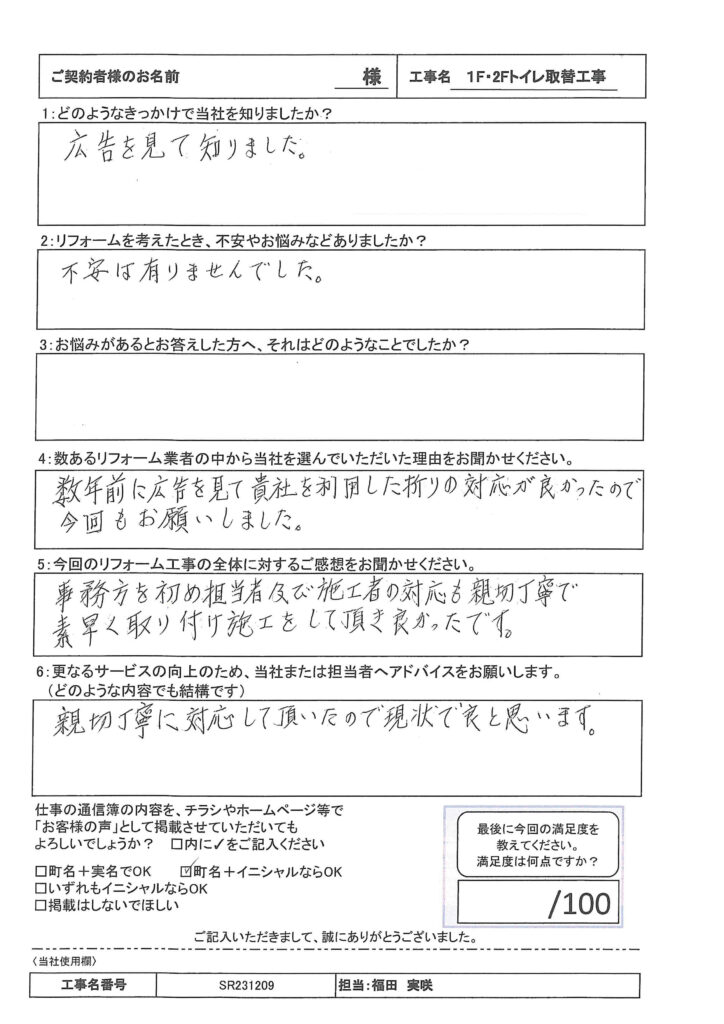 ご契約者様のお名前 様 工事名 1F・2Fトイレ取替工事
1:どのようなきっかけで当社を知りましたか？
広告を見て知りました。
2:リフォームを考えたとき、不安やお悩みなどありましたか？
不安は有りませんでした。
3:お悩みがあるとお答えした方へ、それはどのようなことでしたか？
4:数あるリフォーム業者の中から当社を選んでいただいた理由をお聞かせください。
数年前に広告を見て貴社を利用した折りの対応が良かったので
今回もお願いしました。
5:今回のリフォーム工事の全体に対するご感想をお聞かせください。
事務方を初め担当者及び施工者の対応も親切丁寧で
素早く取り付け施工をして頂き良かったです。
6:更なるサービスの向上のため、当社または担当者へアドバイスをお願いします。
（どのような内容でも結構です）
親切丁寧に対応して頂いたので現状で良と思います。
仕事の通信簿の内容を、チラシやホームページ等で
「お客様の声」として掲載させていただいても
よろしいでしょうか？ □内に✓をご記入ください
□町名＋実名でOK ☑町名＋イニシャルならOK
□いずれもイニシャルならOK
□掲載はしないでほしい
最後に今回の満足度を
教えてください。
満足度は何点ですか？
/100
ご記入いただきまして、誠にありがとうございました。
〈当社使用欄〉
工事名番号 SR231209 担当:福田 実咲